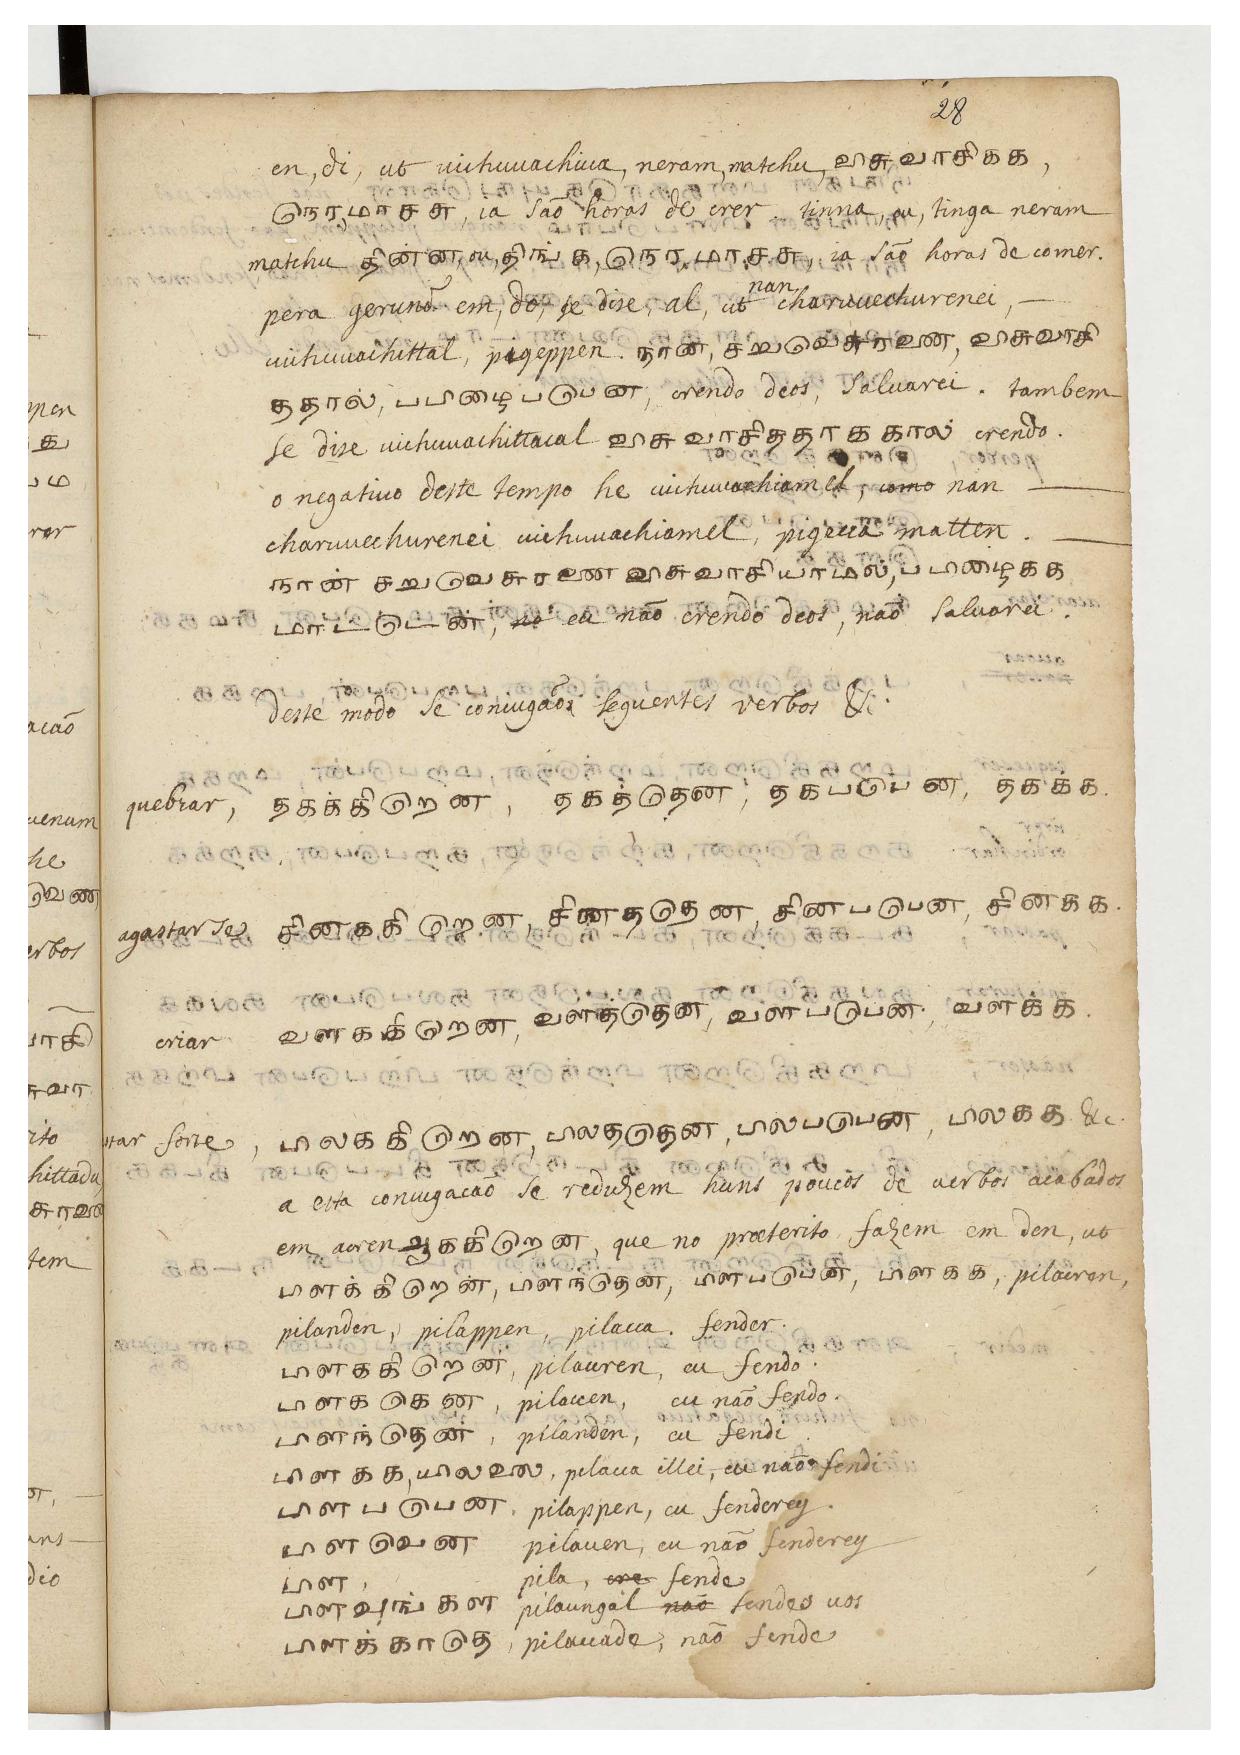 28
en, di, ut uichuuachiuca, neram, matchu, விசுவாசிகக,
நெரமாசசு, ia saõ horas de crer. tinna, ou, tinga neram
matchu தின்ன, ou, திங்க, நெரமாசசு, ia saõ horas de comer.
pera gerund em, do, se dise, al, ut nan charuuechurenei, —
uichuuachittal, pigeppen. நான, சறுவெசுரவண, விசுவாசி
ததால, பிழைபபென, crendo deos, saluarei. tambem
se dise uichuuachittacal விசுவாசிததாககால crendo.
o negatiuo deste tempo he uichuuachiamel, como nan —
charuuechurenei uichuuachiamel, pigecca matten. —
நான் சறுவெசுரவண விசுவாசியாமல, பிழைகக
மாட்டென், eu naõ crendo deos, naõ saluarei.
deste modo se coniugaõ os seguentes verbos &c.
quebrar, தகக்கிறென, தகத்தென, தகபபென, தகக்க.
agastar se சினககிறென, சினததென, சினபபென, சினகக.
criar வளககிறென, வளத்தென, வளபபென, வளக்க.
star forte, பிலககிறென, பிலததென, பிலபபென, பிலகக &c.
a esta coniugacaõ se reduzem huns poucos de uerbos acabados
em acren ஆககிறென, que no præterito fazem em den, ut
பிளக்கிறென், பிளந்தென, பிளபபென, பிளகக, pilacren,
pilanden, pilappen, pilacca. fender.
பிளககிறென, pilacuren, eu fendo.
பிளககென, pilaccen, eu naõ fendo.
பிளந்தென், pilanden, eu fendi
பிளகக, யிலலை, pilacca illei, eu naõ fendi
பிளபபென, pilappen, eu fenderey.
பிளவென pilauen, eu naõ fenderey
பிள, pila, fende
பிளவுங்கள pilaungal naõ fendeo uos
பிளக்காதெ, pilaccade, naõ fende